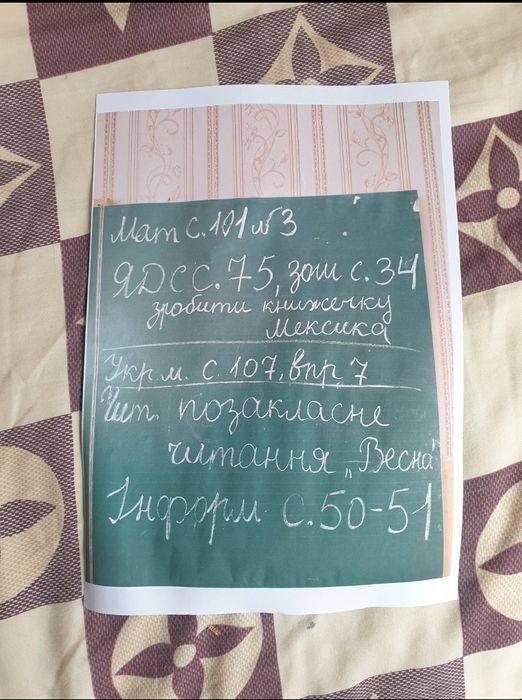 Мат с. 101 № 3
ЯДС С. 75, зош с. 34
зробити книжечку
Мексика
Укр. м. с. 107, впр. 7
Чит. позакласне
читання „Весна"
Інформ с. 50-51